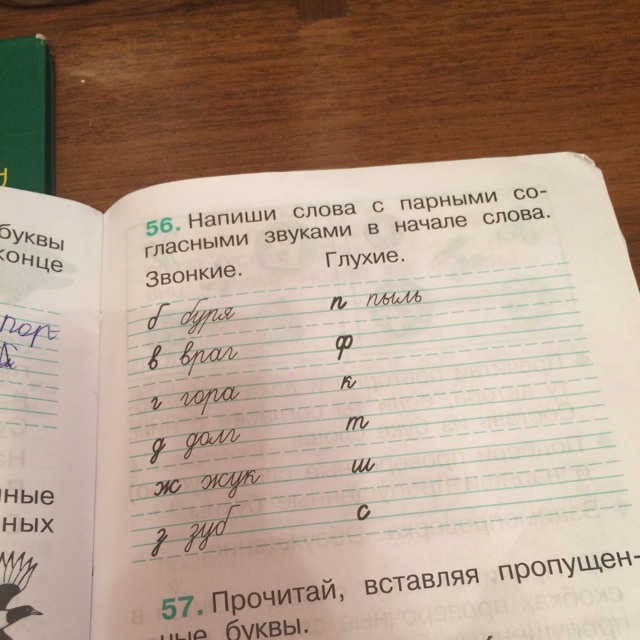 буквы
конце
пар
ные
ных
56. Напиши слова с парными со-
гласными звуками в начале слова.
Звонкие. Глухие.
б буря п пыль
в враг ф
г гора к
д долг т
ж жук ш
з зуб с
57. Прочитай, вставляя пропущен-
ные буквы.